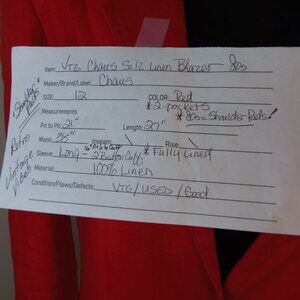 Item: VTG Chaus Sz12 Linen Blazer 80s
Maker/Brand/Label: Chaus
SIZE: 12 COLOR: Red
*2-pockets
Measurements *80s=Shoulder-Pads!
Pit to Pit: 21" Length: 27"
Waist: Inseam: Rise:
Sleeve: Long - 2 Button Cuff * Fully Lined
Material: 100% Linen
Condition/Flaws/Defects: VTG/USED/Good
"Shoulder
Pads"
Retro
Vintage
Vibes